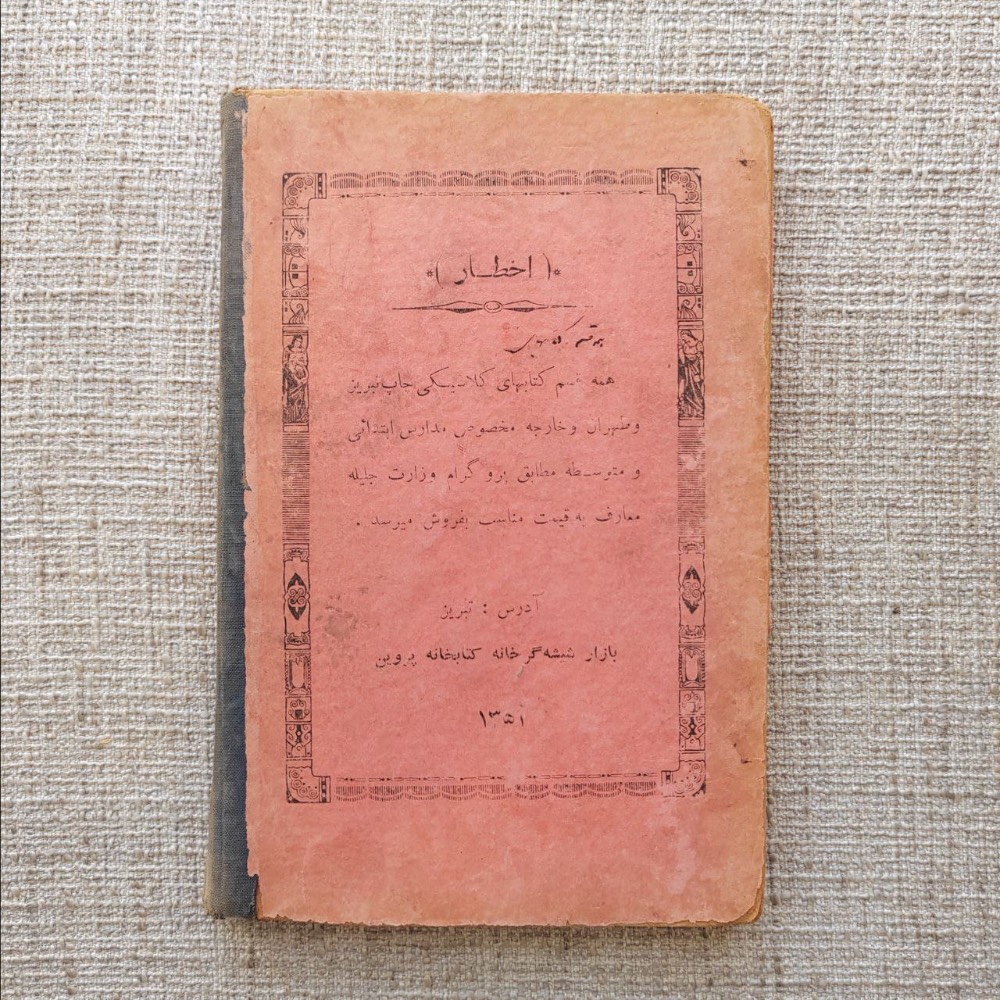 *( اخطار )*
همه قسم کتابهای کلاسیکی چاپ تبریز
وطهران وخارجه مخصوص مدارس ابتدائی
و متوسطه مطابق پروگرام وزارت جلیله
معارف به قیمت مناسب بفروش میرسد .
آدرس : تبریز
بازار شیشه‌گرخانه کتابخانه پروین
۱۳۵۱